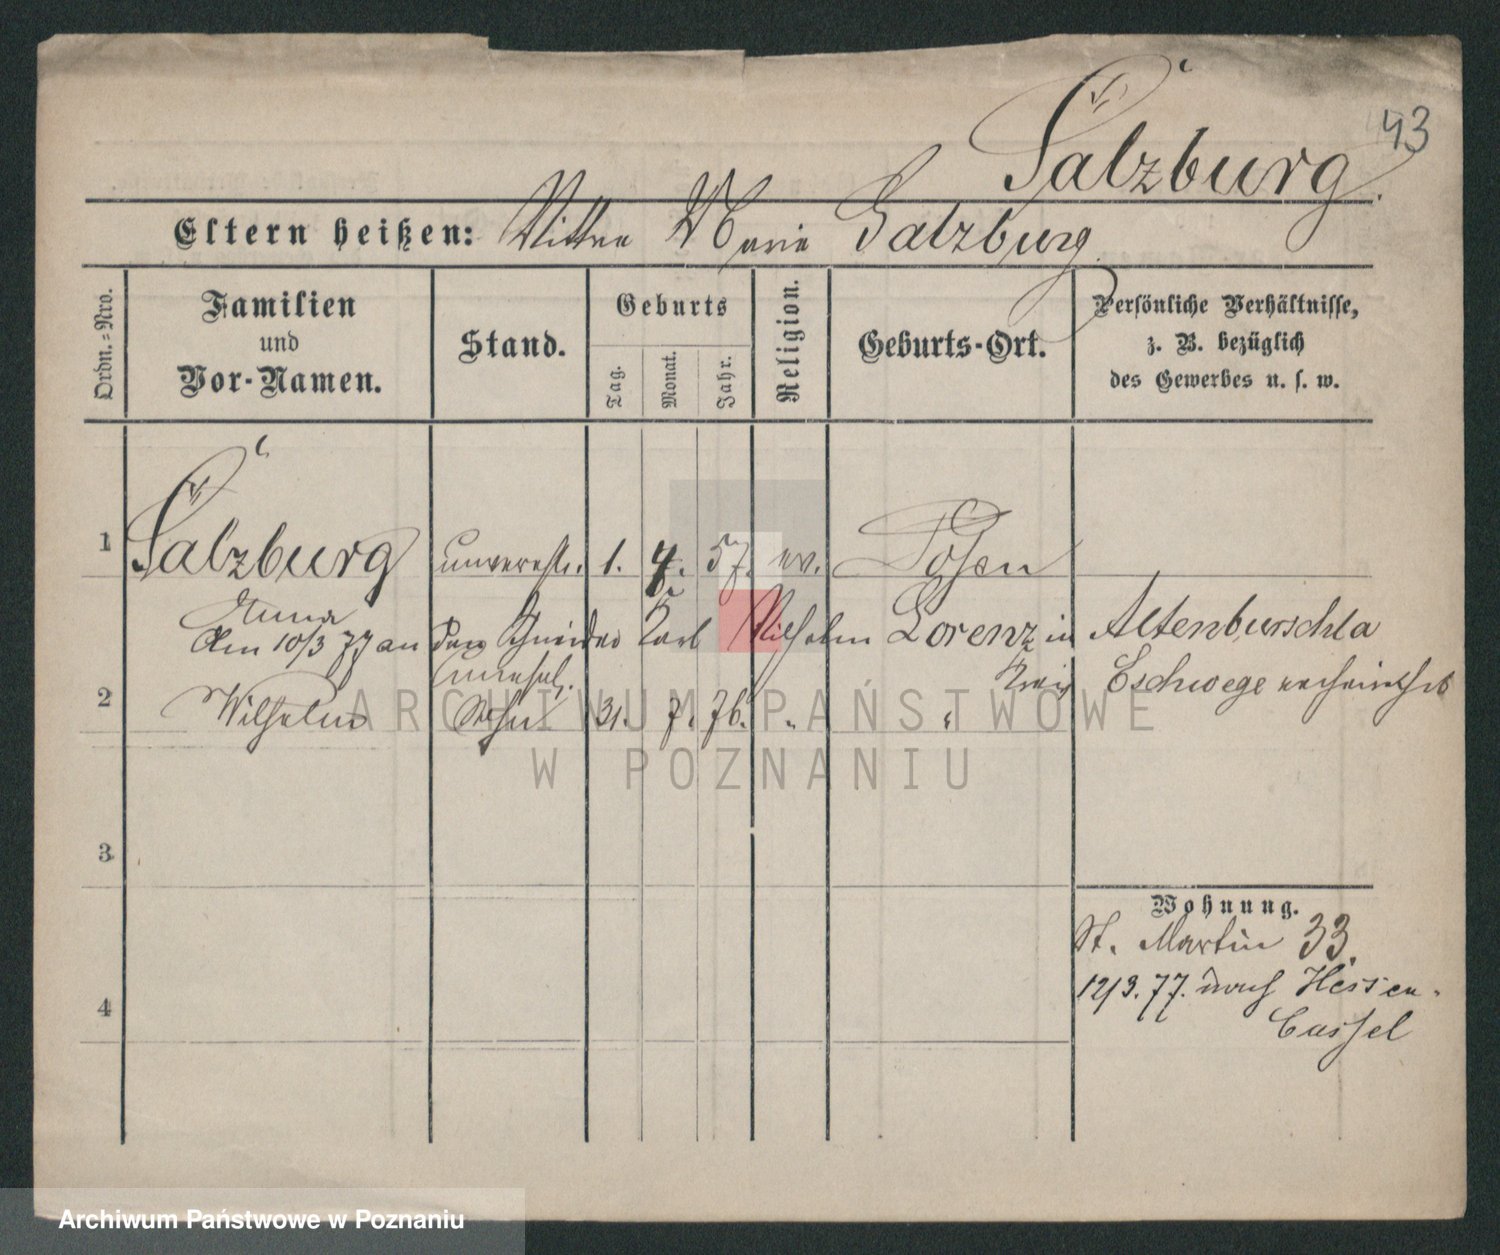 43
Salzburg.
Eltern heißen: Wittwe Marie Salzburg
Ordn.-Nro.
Familien
und
Vor-Namen.
Stand.
Geburts
Tag.
Monat.
Jahr.
Religion.
Geburts-Ort.
Persönliche Verhältnisse,
z. B. bezüglich
des Gewerbes u. s. w.
1 Salzburg unverehl. 1. 4. 57. ev. Posen
Anna
Am 10/3 77 an den Schneider Karl Wilhelm Lorenz in Altenburschla
Kreis Eschwege verheirathet
2 Wilhelm unehel. Sohn 31. 7. 76. " "
3
4
Wohnung.
St. Martin 33.
12/3. 77. nach Hessen-
Cassel
ARCHIWUM PAŃSTWOWE
W POZNANIU
Archiwum Państwowe w Poznaniu